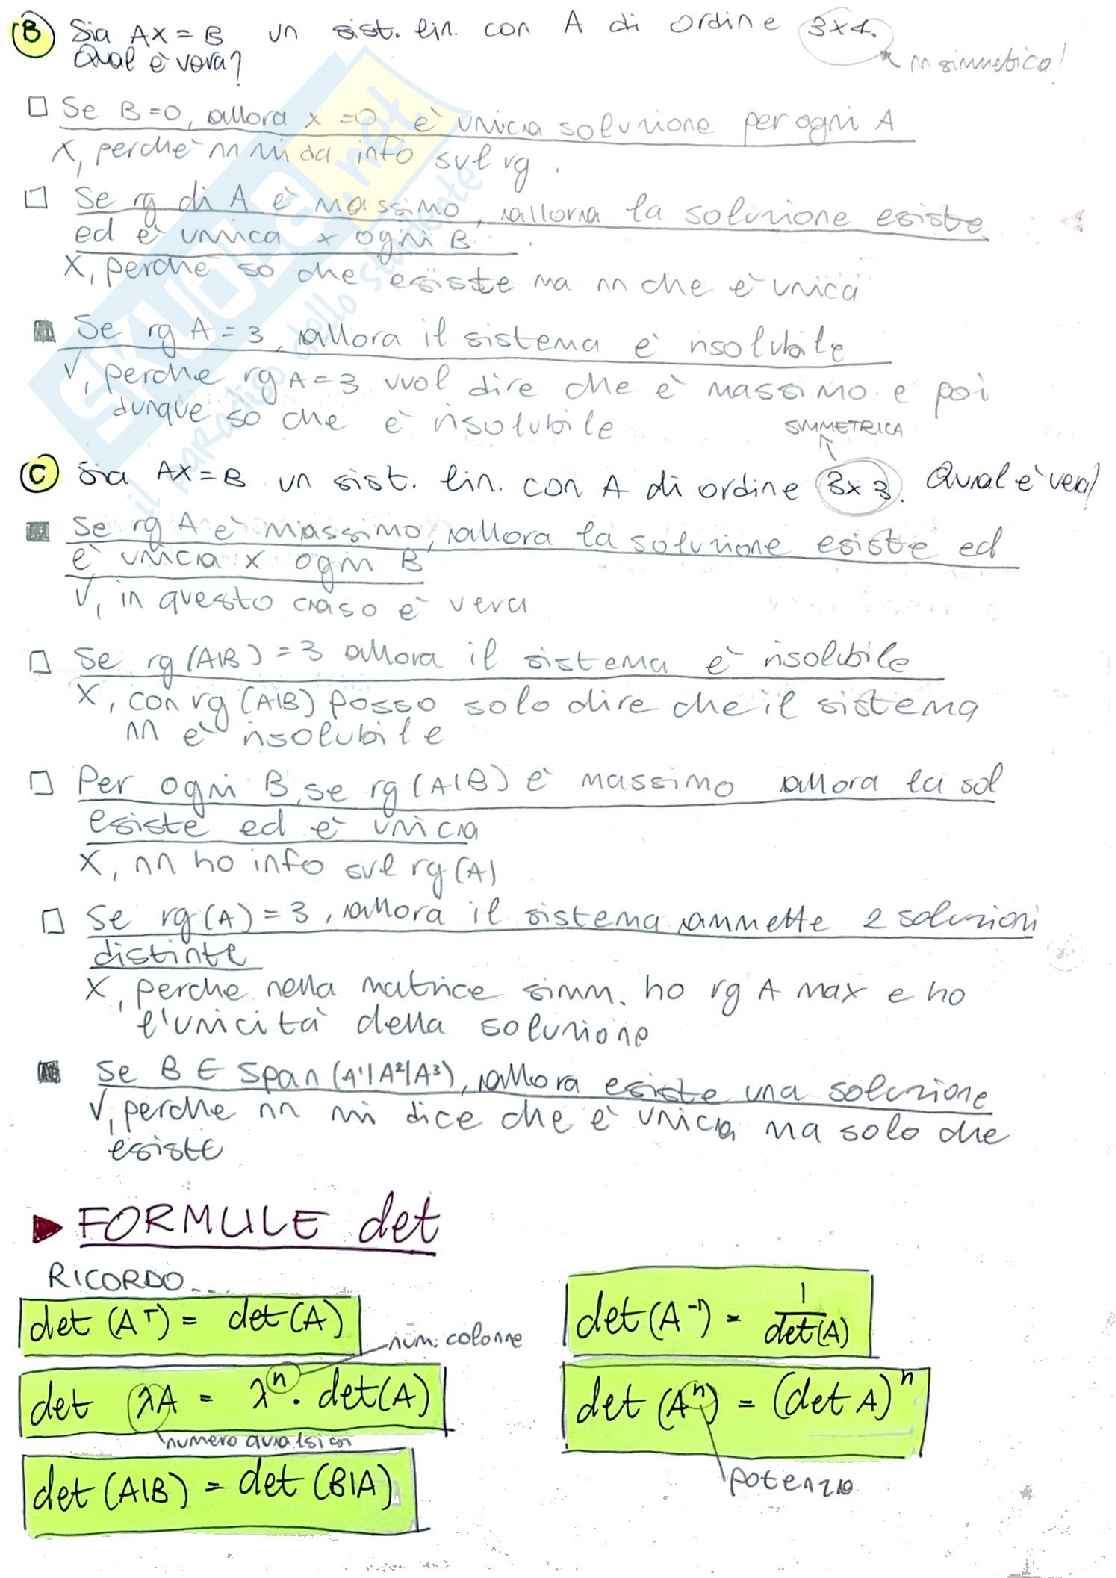 B Sia AX = B un sist. lin. con A di ordine 3x4.
Qual è vera?
nn simmetica!
Se B=0, allora x=0 è unica soluzione per ogni A
X, perche nn mi da info sul rg.
Se rg di A è massimo, allora la soluzione esiste
ed è unica x ogni B
X, perche so che esiste ma nn che è unica
Se rg A = 3, allora il sistema è risolubile
V, perche rg A = 3 vuol dire che è massimo e poi
dunque so che è risolubile
SIMMETRICA
C Sia AX = B un sist. lin. con A di ordine 3x3. Qual è vera?
Se rg A è massimo, allora la soluzione esiste ed
è unica x ogni B
V, in questo caso è vera
Se rg (A|B) = 3 allora il sistema è risolubile
X, con rg (A|B) posso solo dire che il sistema
nn è risolubile
Per ogni B, se rg (A|B) è massimo allora la sol
esiste ed è unica
X, nn ho info sul rg (A)
Se rg(A) = 3, allora il sistema ammette 2 soluzioni
distinte
X, perche nella matrice simm. ho rg A max e ho
l'unicità della soluzione
Se B ∈ Span (A¹|A²|A³), allora esiste una soluzione
V, perche nn mi dice che è unica, ma solo che
esiste
FORMULE det
RICORDO...
det (Aᵀ) = det (A)
det (A⁻¹) = 1/det(A)
num. colonne
det (λA = λⁿ · det(A)
numero qualsiasi
det (Aⁿ) = (det A)ⁿ
potenza
det (A|B) = det (B|A)
SKUOLA.net
il paradiso dello studente